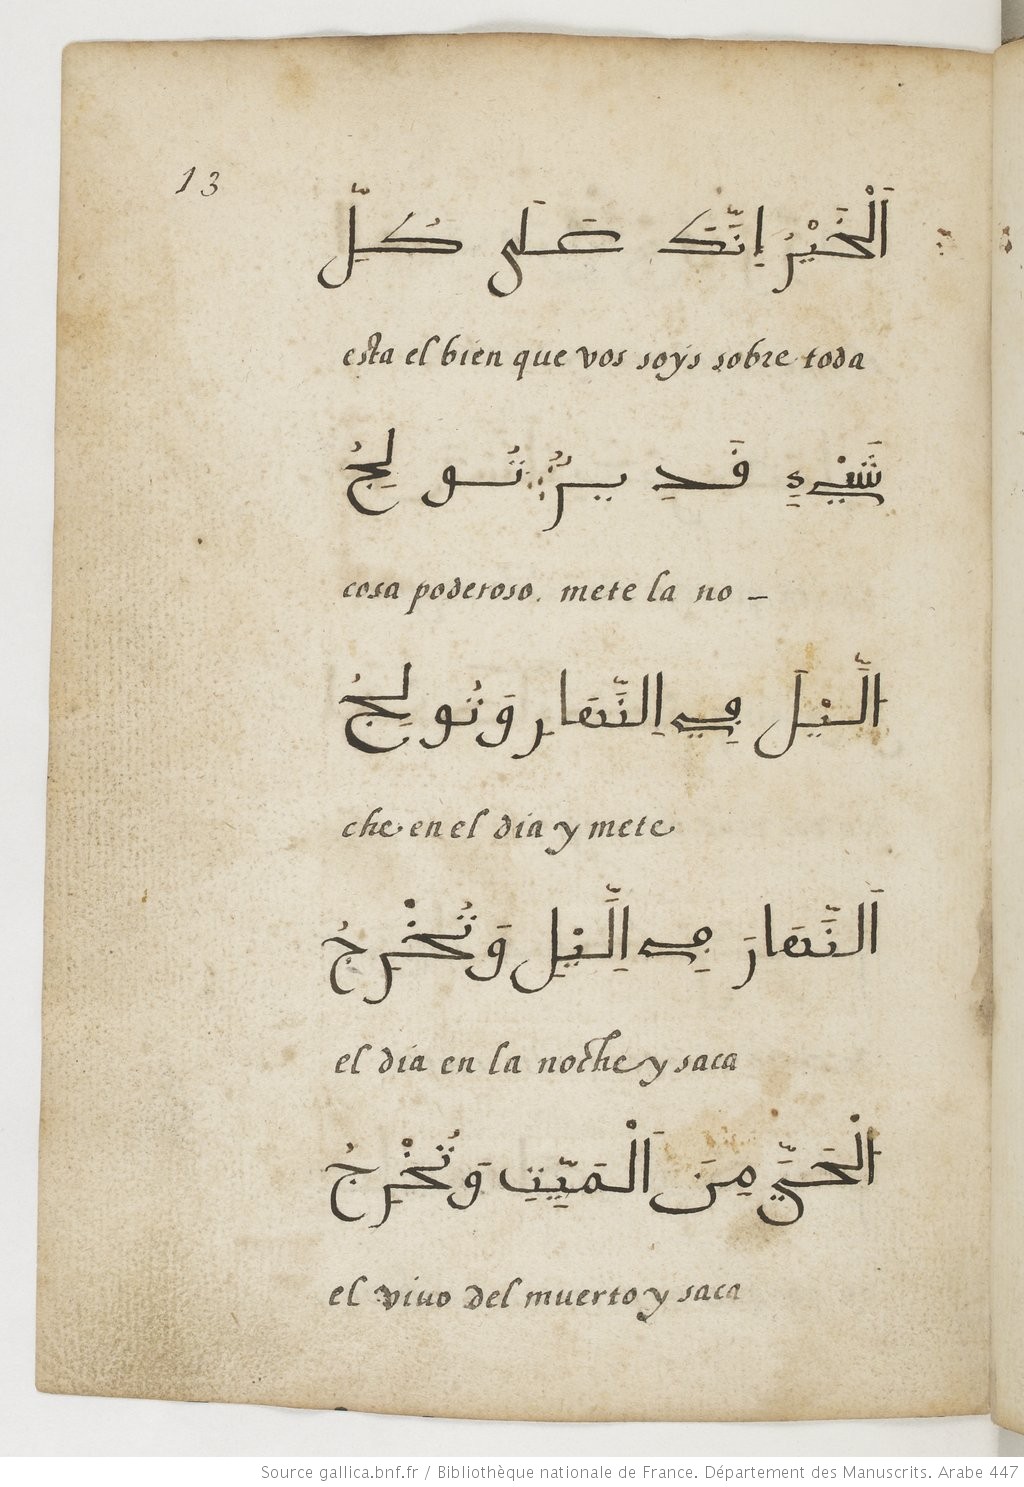 13
اَلْخَيْرُ اِنَّكَ عَلَى كُلِّ
esta el bien que vos soys sobre toda
شَيْءٍ قَدِيرٌ تُولِجُ
cosa poderoso. mete la no –
الَّيْلَ فِي اِلنَّهَارِ وَتُولِجُ
che en el dia y mete
اَلنَّهَارَ فِي اِلَّيْلِ وَتُخْرِجُ
el dia en la noche y saca
الْحَيَّ مِنَ اَلْمَيِّتِ وَتُخْرِجُ
el vivo del muerto y saca
Source gallica.bnf.fr / Bibliothèque nationale de France. Département des Manuscrits. Arabe 447